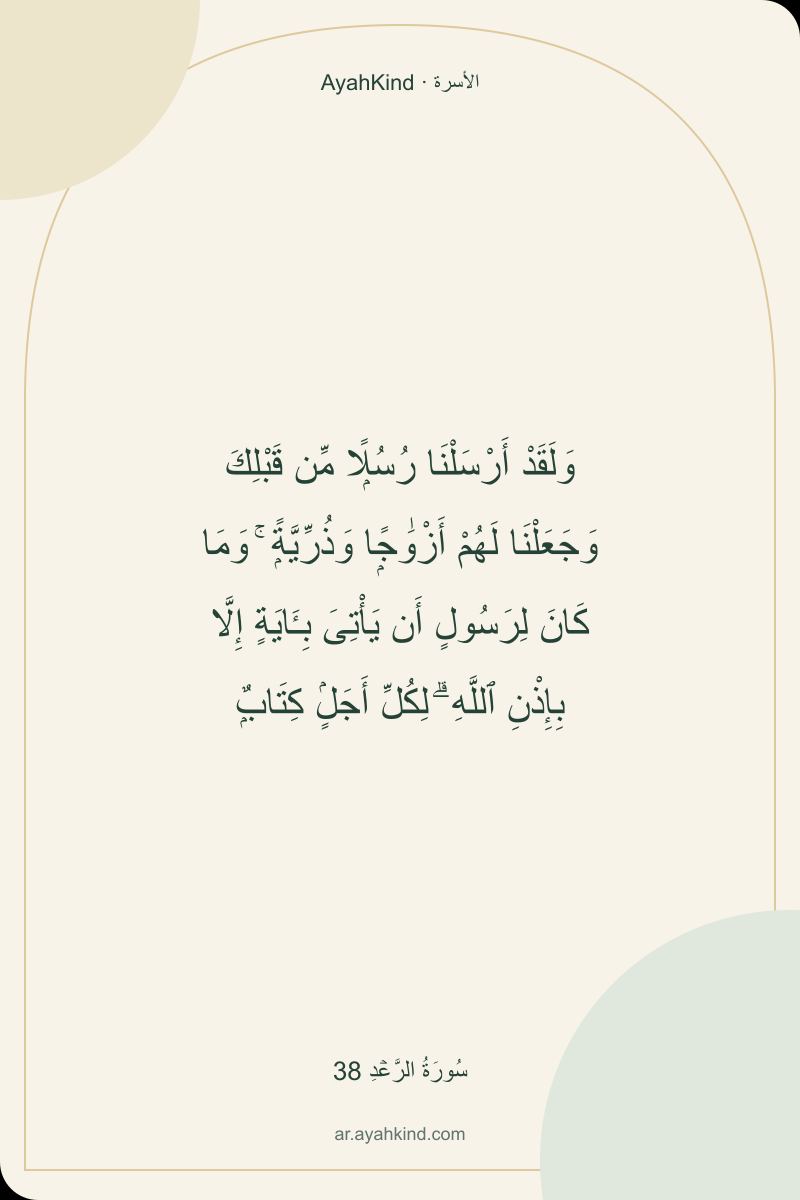 AyahKind · الأسرة
وَلَقَدْ أَرْسَلْنَا رُسُلًۭا مِّن قَبْلِكَ
وَجَعَلْنَا لَهُمْ أَزْوَٰجًۭا وَذُرِّيَّةًۭ ۚ وَمَا
كَانَ لِرَسُولٍ أَن يَأْتِىَ بِـَٔايَةٍ إِلَّا
بِإِذْنِ ٱللَّهِ ۗ لِكُلِّ أَجَلٍۢ كِتَابٌۭ
سُورَةُ الرَّعۡدِ 38
ar.ayahkind.com